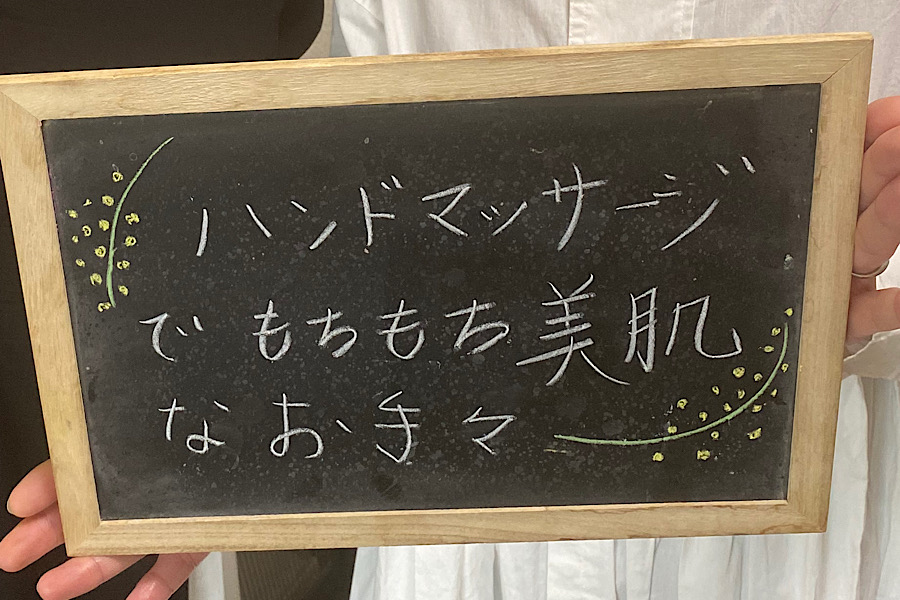 ハンドマッサージ
でもちもち美肌
なお手々